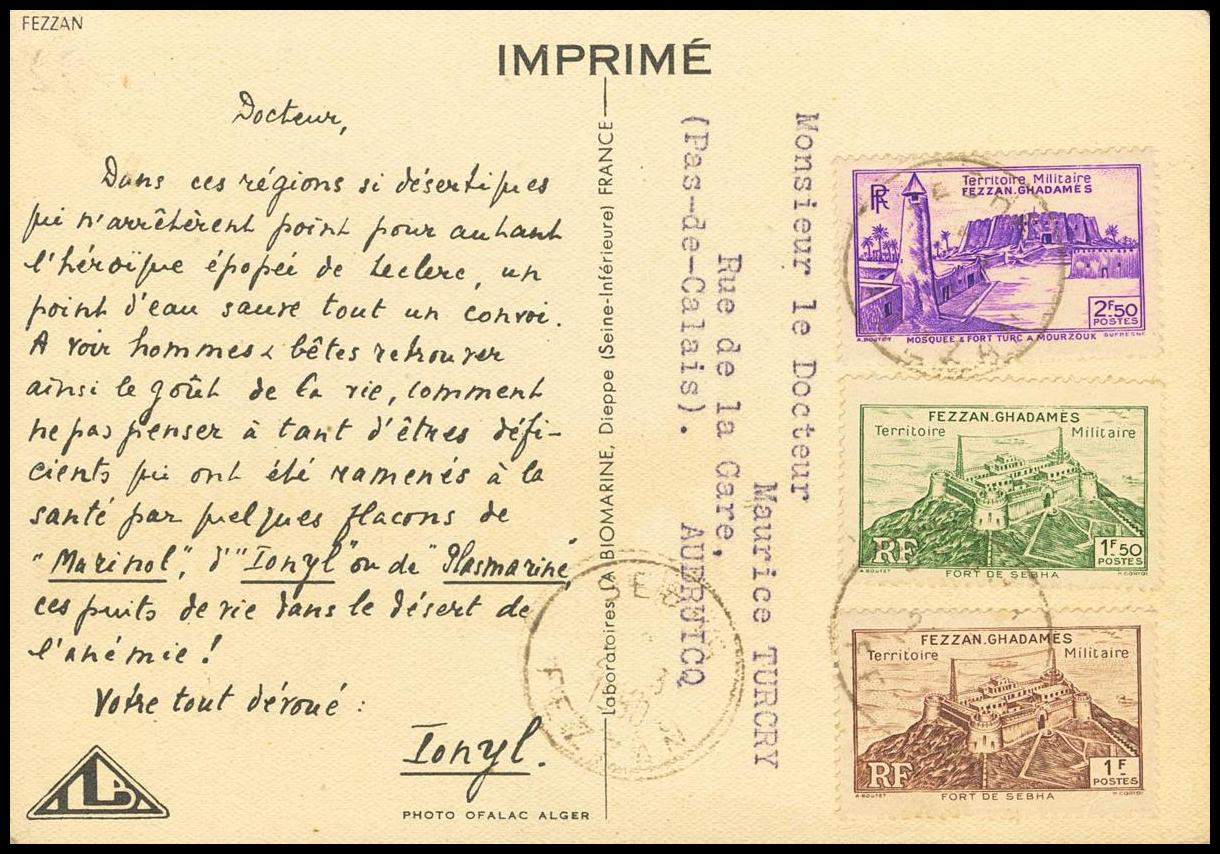 FEZZAN
IMPRIMÉ
Docteur,
Dans ces régions si désertiques
qui n'arrêtèrent point pour autant
l'héroïque épopée de Leclerc, un
point d'eau sauve tout un convoi.
A voir hommes & bêtes retrouver
ainsi le goût de la vie, comment
ne pas penser à tant d'êtres défi-
cients qui ont été ramenés à la
santé par quelques flacons de
"Marinol", d'"Ionyl" ou de "Plasmarine",
ces puits de vie dans le désert de
l'anémie !
Votre tout dévoué :
Ionyl.
LB
PHOTO OFALAC ALGER
Laboratoires LA BIOMARINE, Dieppe (Seine-Inférieure) FRANCE
Monsieur le Docteur
Maurice TURCRY
Rue de la Gare,
AUDRUICQ
(Pas-de-Calais).
SEBHA
FEZZAN
RF
Territoire Militaire
FEZZAN.GHADAMÈS
2F.50
POSTES
A.BOUTET MOSQUÉE & FORT TURC A MOURZOUK DUFRESNE
FEZZAN.GHADAMÈS
Territoire Militaire
RF
1F.50
POSTES
A.BOUTET FORT DE SEBHA H.CORTOT
FEZZAN.GHADAMÈS
Territoire Militaire
RF
1F
POSTES
A.BOUTET FORT DE SEBHA H.CORTOT